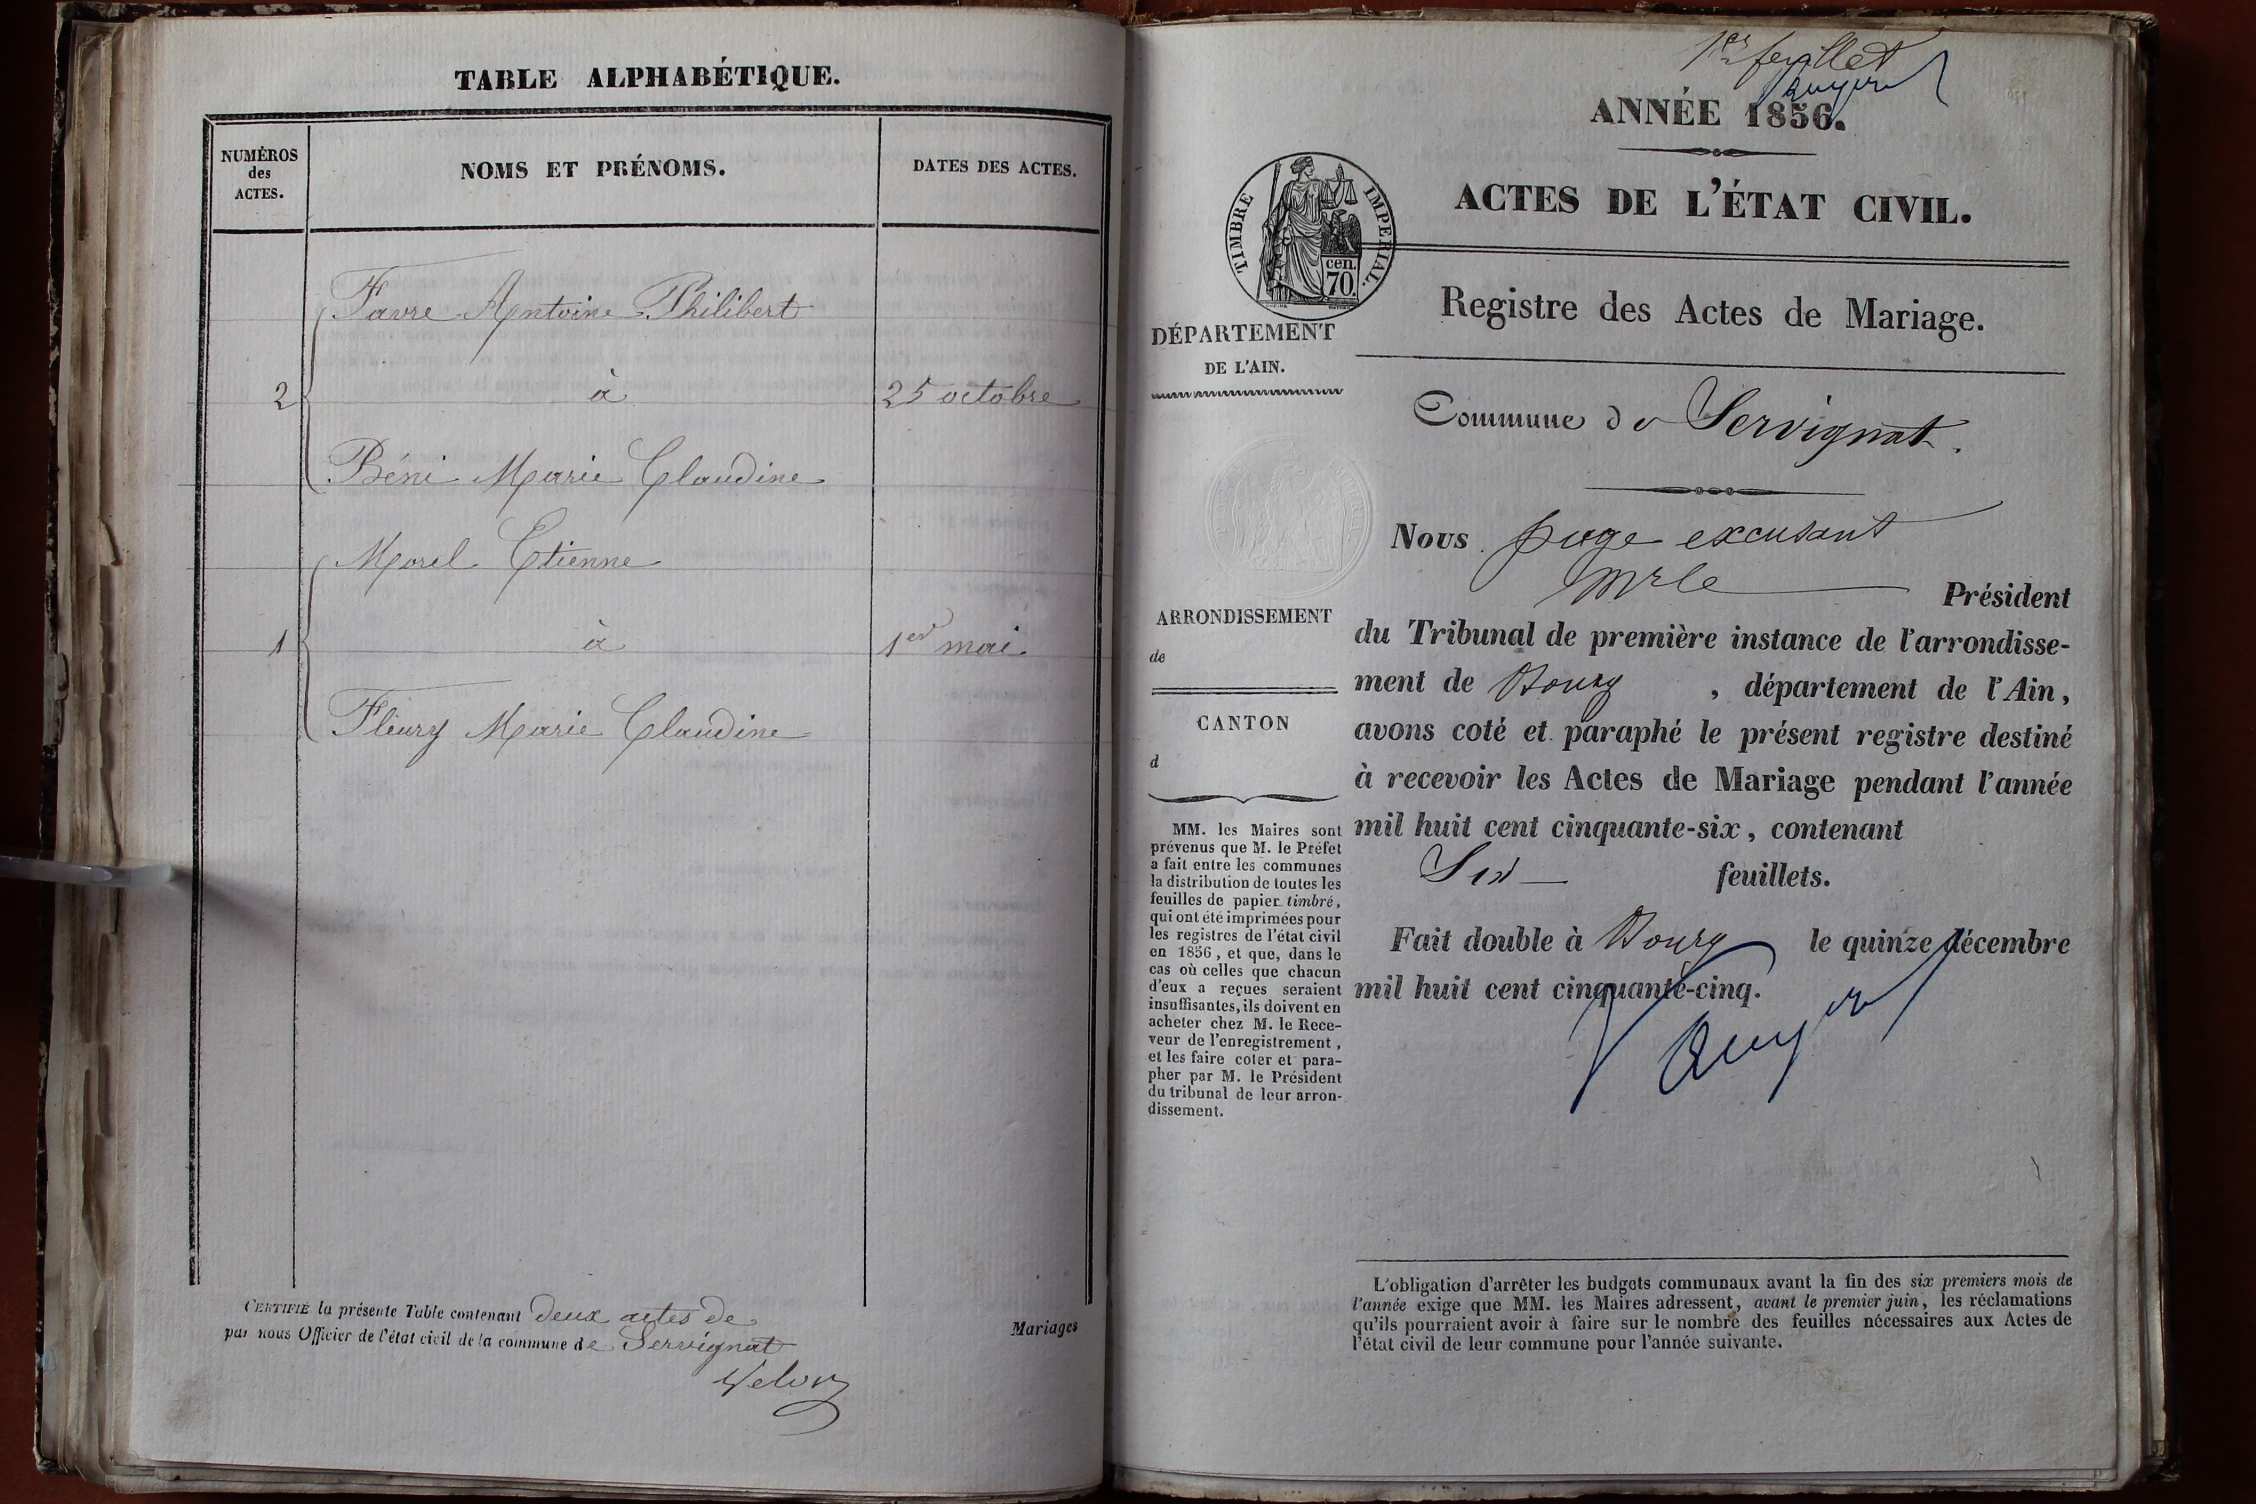 TABLE ALPHABÉTIQUE.
NUMÉROS
des
ACTES.
NOMS ET PRÉNOMS.
DATES DES ACTES.
Favre Antoine Philibert
2
à
25 octobre
Béni Marie Claudine
Morel Etienne
1
à
1er mai
Fleury Marie Claudine
CERTIFIÉ la présente Table contenant deux actes de
par nous Officier de l'état civil de la commune de Servignat
Mariages
1er feuillet
ANNÉE 1856.
ACTES DE L'ÉTAT CIVIL.
TIMBRE IMPERIAL.
cen.
70.
Registre des Actes de Mariage.
DÉPARTEMENT
DE L'AIN.
Commune de Servignat.
ARRONDISSEMENT
de
CANTON
d
MM. les Maires sont
prévenus que M. le Préfet
a fait entre les communes
la distribution de toutes les
feuilles de papier timbré,
qui ont été imprimées pour
les registres de l'état civil
en 1856, et que, dans le
cas où celles que chacun
d'eux a reçues seraient
insuffisantes, ils doivent en
acheter chez M. le Rece-
veur de l'enregistrement,
et les faire coter et para-
pher par M. le Président
du tribunal de leur arron-
dissement.
Nous juge excusant
Mr le Président
du Tribunal de première instance de l'arrondisse-
ment de Bourg, département de l'Ain,
avons coté et paraphé le présent registre destiné
à recevoir les Actes de Mariage pendant l'année
mil huit cent cinquante-six, contenant
Six feuillets.
Fait double à Bourg le quinze décembre
mil huit cent cinquante-cinq.
L'obligation d'arrêter les budgets communaux avant la fin des six premiers mois de
l'année exige que MM. les Maires adressent, avant le premier juin, les réclamations
qu'ils pourraient avoir à faire sur le nombre des feuilles nécessaires aux Actes de
l'état civil de leur commune pour l'année suivante.